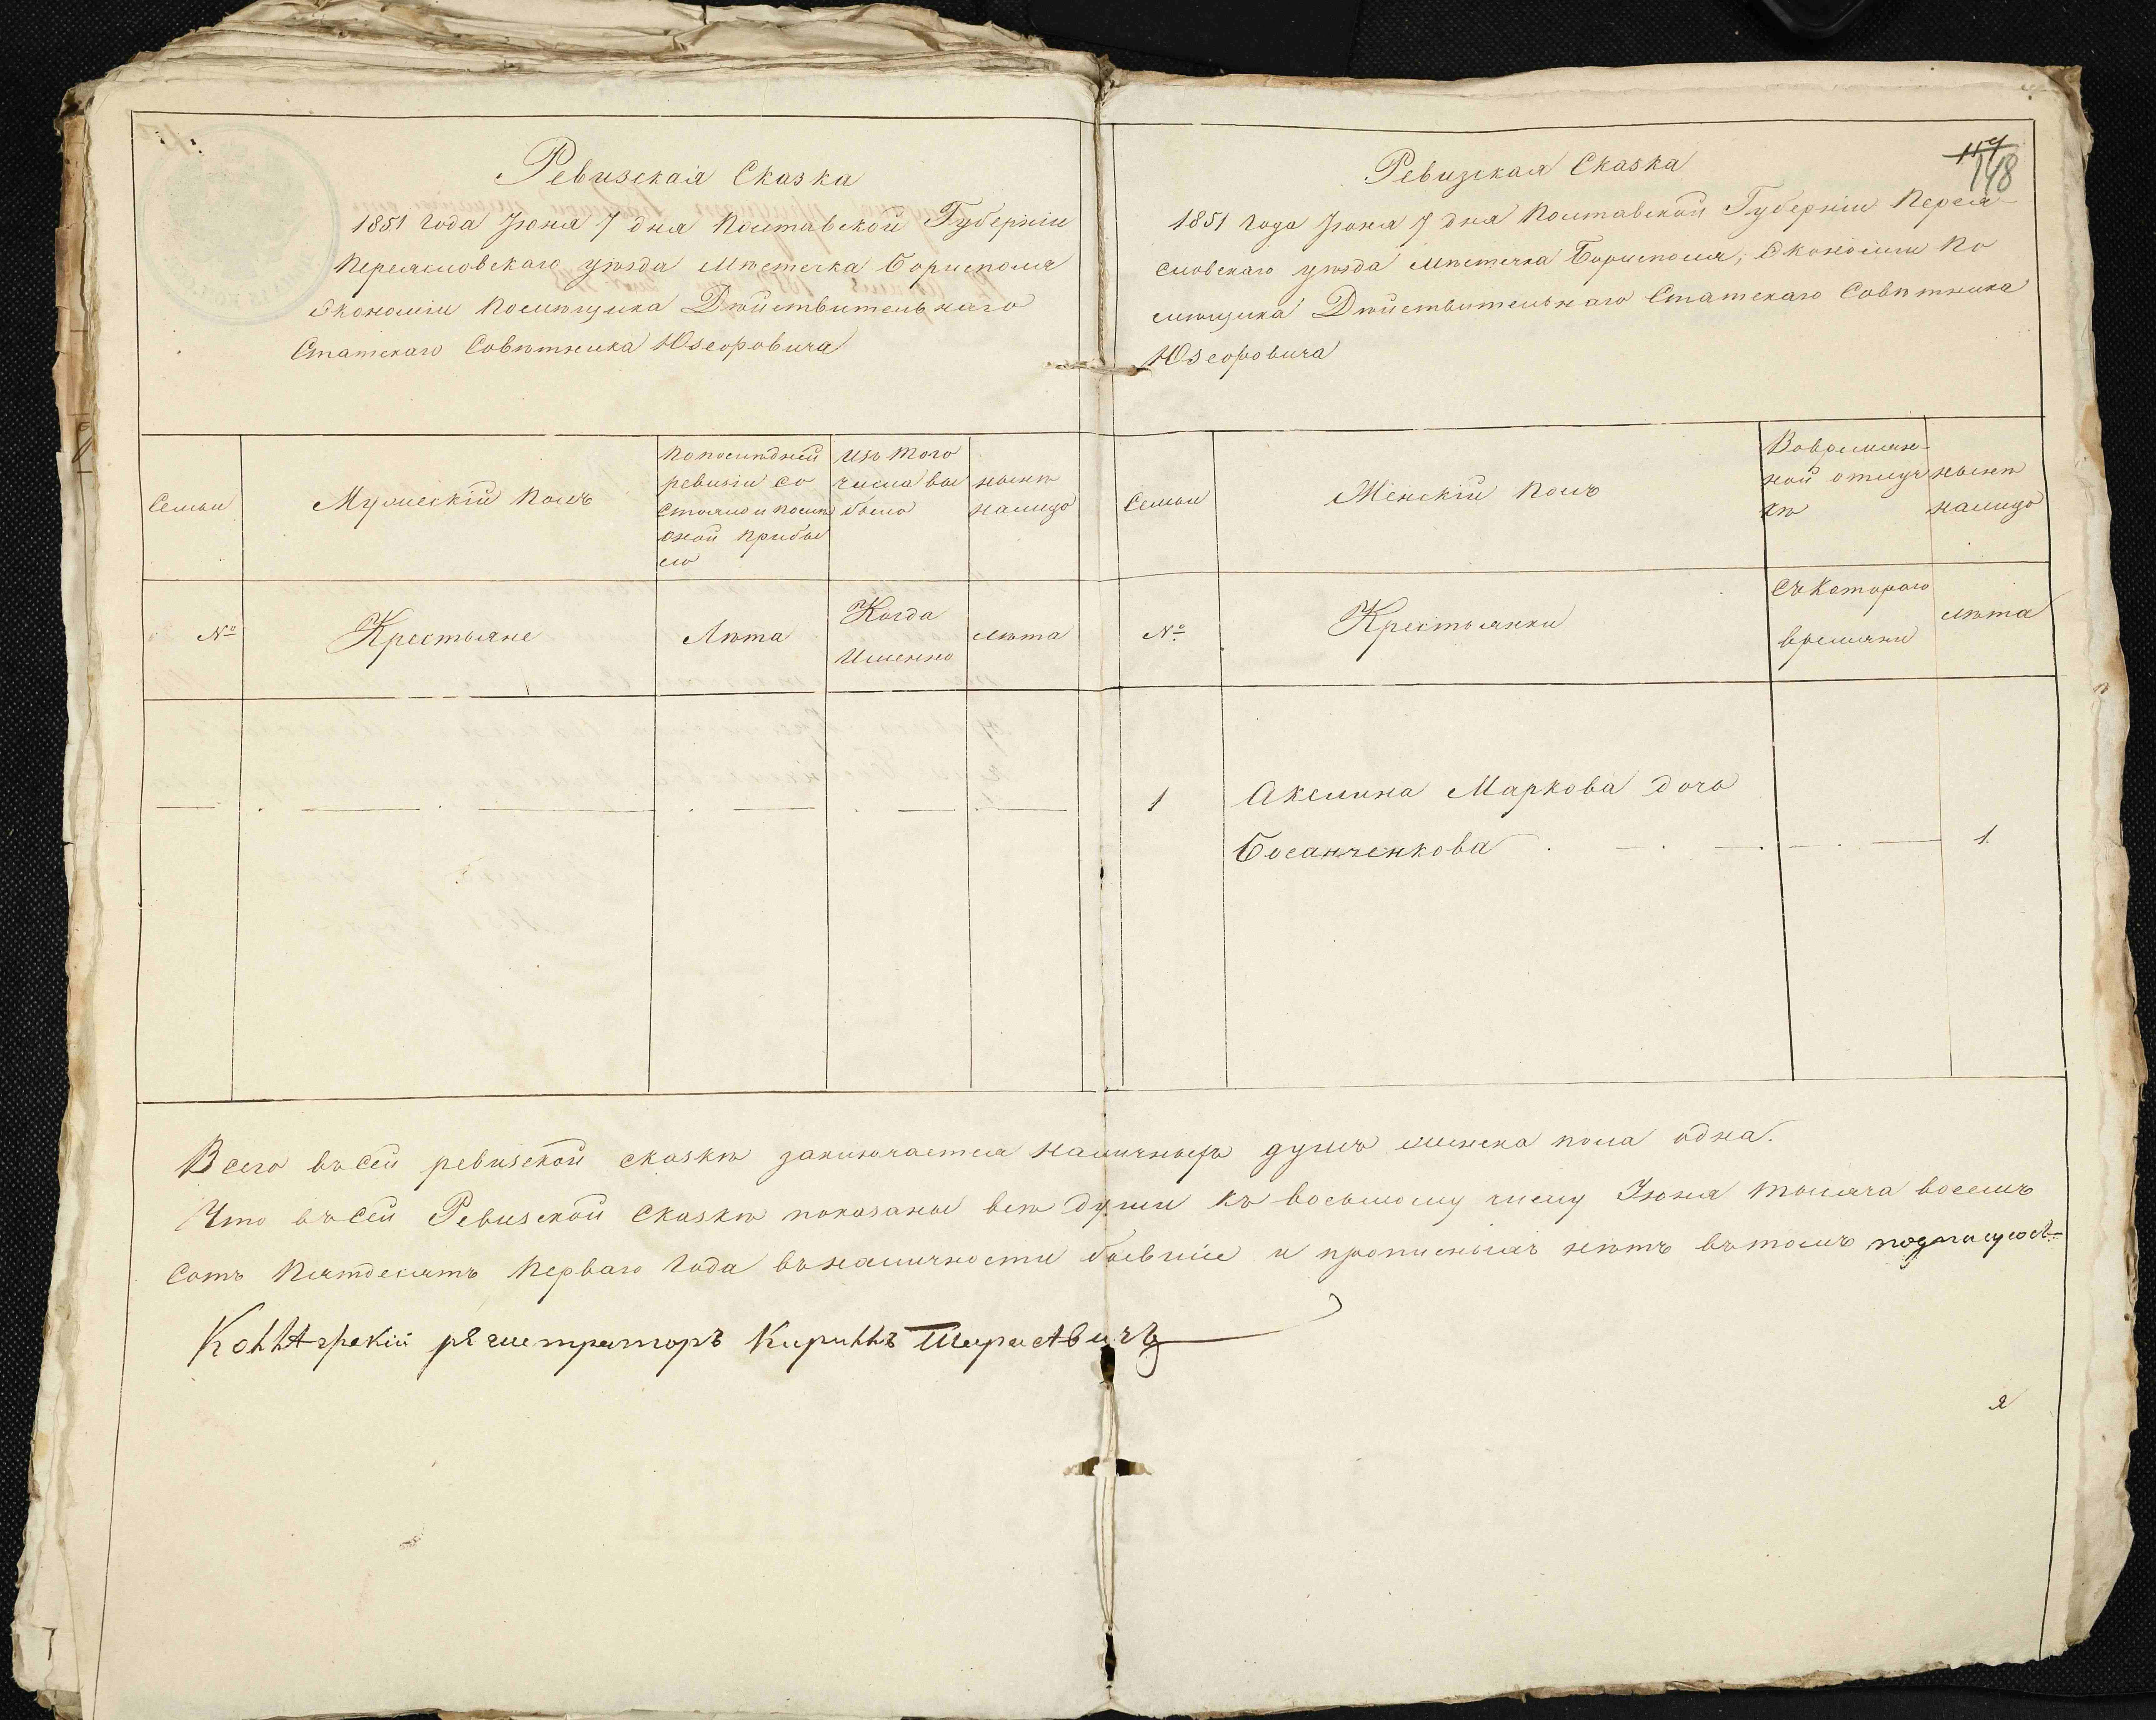 Ревизская Сказка
1851 года Іюня 7 дня Полтавской Губерніи
Переяславскаго уѣзда Мѣстечка Борисполя
Экономіи Помѣщика Дѣйствительнаго
Статскаго Совѣтника Юзефовича
Семьи
Мужескій полъ
По последней
ревизіи со
стояло и послѣ
оной прибы
ло
Изъ того
числа вы
было
нынѣ
налицо
№
Крестьяне
Лѣта
Когда
Именно
лѣта
148
Ревизская Сказка
1851 года Іюня 7 дня Полтавской Губерніи Перея-
словскаго уѣзда Мѣстечка Борисполя, Экономіи По
мѣщика Дѣйствительнаго Статскаго Совѣтника
Юзефовича
Семьи
Женскій полъ
Во времян-
ной отлуч
кѣ
нынѣ
налицо
№
Крестьянки
Съ Котораго
времяни
лѣта
1 Акелина Маркова дочь
Босанченкова 1
Всего въ сей ревизской сказкѣ заключается наличныхъ душъ женска пола одна.
Что въ сей Ревизской Сказкѣ показаны всѣ души къ восьмому числу Іюня тысяча восемь
сотъ пятдесятъ перваго года въ наличности бывшіе и прописныхъ нѣтъ въ томъ подписуюсь-
регистраторъ Кириллъ